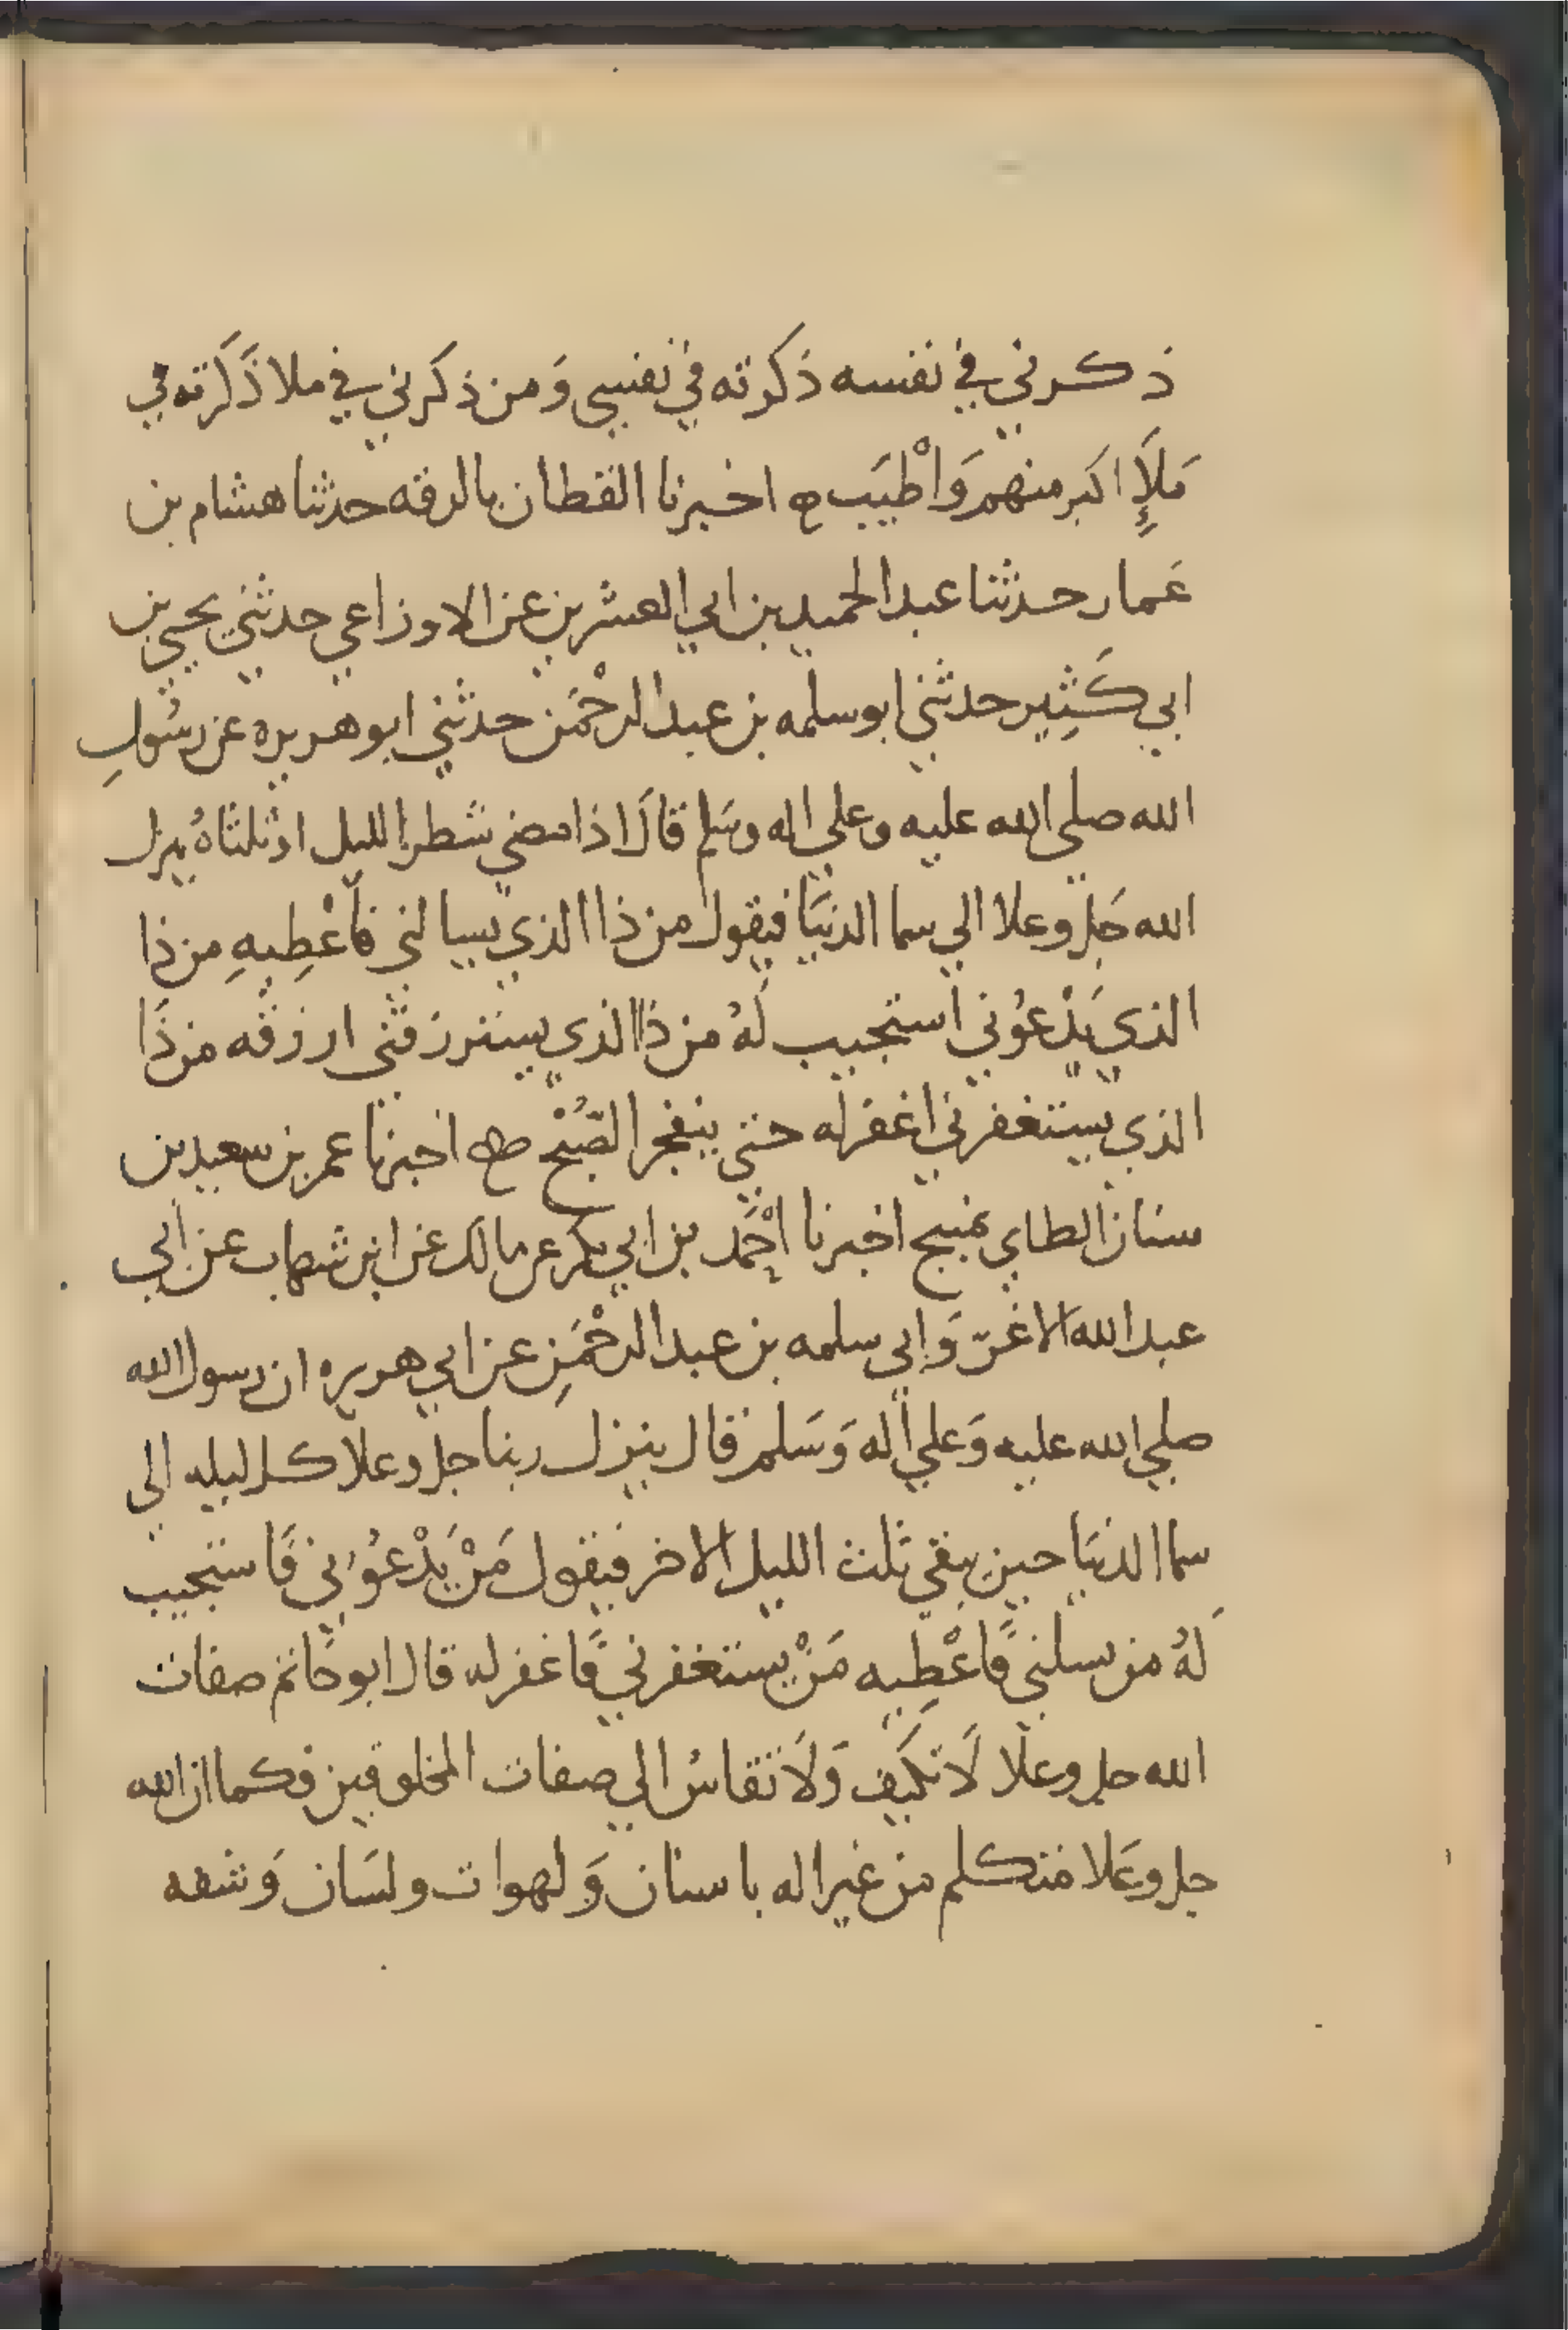 ذكرني في نفسه ذكرته في نفسي وَمن ذكرني في ملا ذَكَرته في
مَلَإٍ اكبر منهم وَاطْيَب ه اخبرنا القطان بالرقه حدثنا هشام بن
عَمار حدثنا عبد الحميد بن ابي العشرين عن الاوزاعي حدثني يحيي بن
ابي كَثِير حدثني ابو سلمه بن عبد الرحْمَن حدثني ابو هريره عن رسُولِ
الله صلي الله عليه وعلي اله وسَلم قالَ اذا مضي شطر الليل او ثلثاهُ ينزل
الله جَل وعلا الي سما الدنيَا فيقول من ذا الذي يسالني فأعْطِيهِ من ذا
الذي يَدْعُوني استجيب لَهُ من ذا الذي يسترزقني ارزقه من ذَا
الذي يستغفرني اغفر له حتي ينفجر الصّبُحْ اخبرنا عمر بن سعيد بن
سنان الطاي بمنبج اخبرنا احْمَد بن ابي بكر عن مالك عن ابن شهاب عن ابي
عبد الله الاغَرّ وَابي سلمه بن عبد الرحْمَنِ عن ابي هريره ان رسول الله
صلي الله عليه وَعلي اله وَسَلم قال ينزل ربنا جل وعلا كل ليله الي
سما الدنيَا حين يبقي ثلث الليل الاخر فيقول مَنْ يَدْعُوني فَاستجيب
لَهُ من يسلني فَاعْطِيه مَنْ يستغفرني فَاغفر له قال ابو حَاتم صفات
الله جل وعلا لَا تكَيف وَلَا تقاسُ الي صفات المخلوقين فكما ان الله
جل وعَلا متكلم من غير اله باسنان وَلهوات ولسَان وَشفه